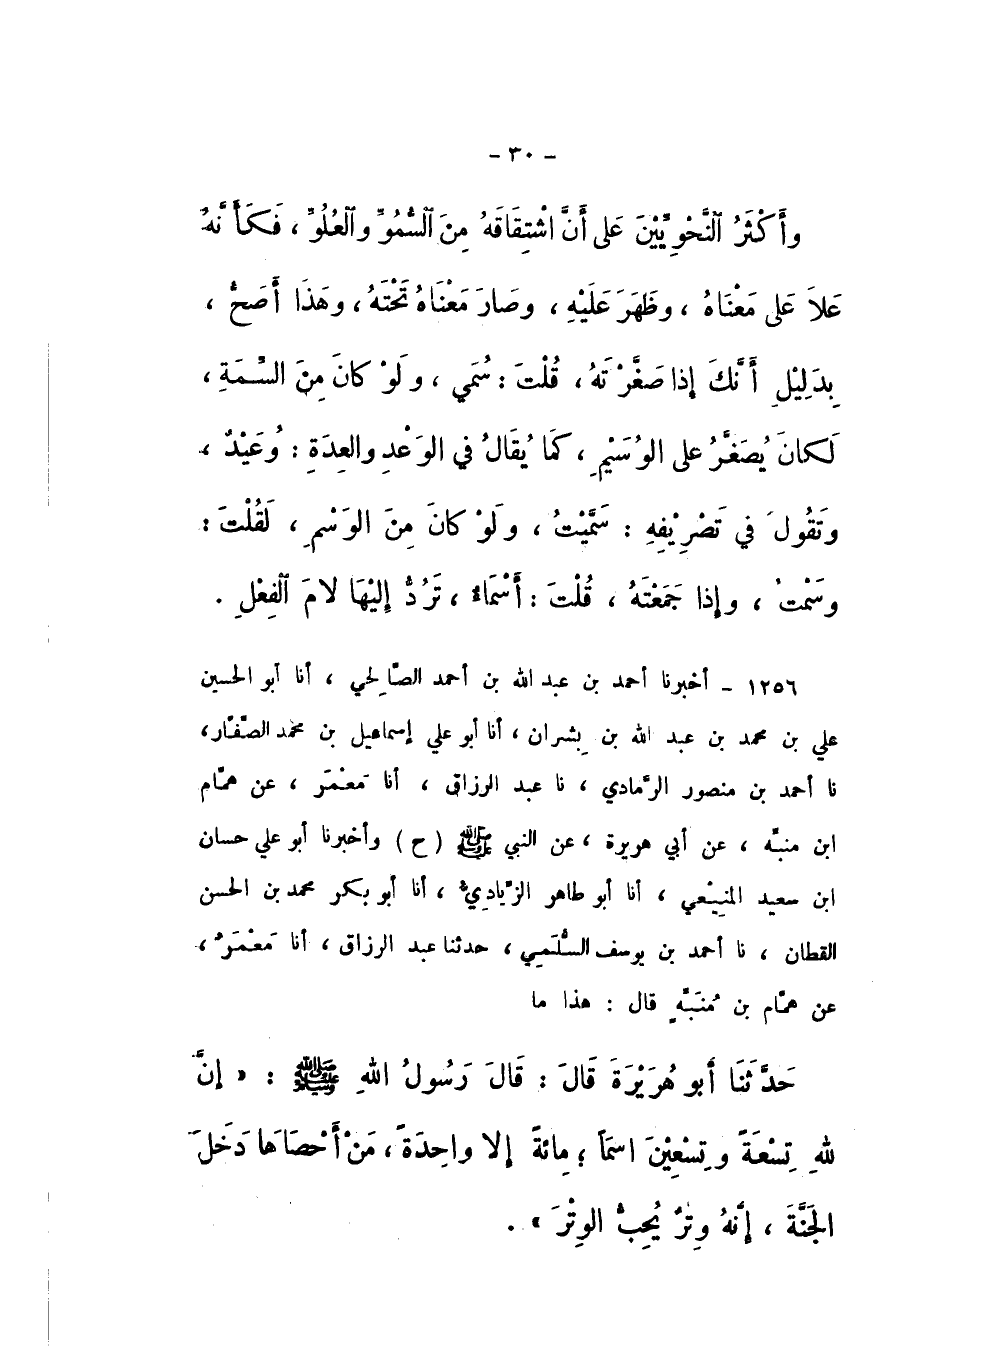 - ٣٠ -
وأَكْثَرُ ٱلنَّحْوِيِّيْنَ عَلى أَنَّ اشْتِقَاقَهُ مِنَ ٱلسُّمُوِّ وٱلْعُلُوِّ ، فَكَأَنَّهُ
عَلاَ عَلى مَعْنَاهُ ، وظَهَرَ عَلَيْهِ ، وصَارَ مَعْنَاهُ تَحْتَهُ ، وهَذَا أَصَحُّ ،
بِدَلِيْلِ أَنَّكَ إذا صَغَّرْتَهُ ، قُلْتَ : سُمَي ، ولَوْ كانَ مِنَ السِّمَةِ ،
لَكانَ يُصَغَّرُ على الوُسَيْمِ ، كَمَا يُقَالُ في الوَعْدِ والعِدَةِ : وُعَيْدٌ ،
وتَقُولَ في تَصْرِيْفِهِ : سَمَّيْتُ ، ولَوْ كانَ مِنَ الوَسْمِ ، لَقُلْتَ :
وسَمْتُ ، وإذا جَمَعْتَهُ ، قُلْتَ : أَسْمَاءٌ ، تَرُدُّ إلَيْهَا لامَ ٱلْفِعْلِ .
١٢٥٦ - أخبرنا أحمد بن عبد الله بن أحمد الصَّالِحي ، أنا أبو الحسين
علي بن محمد بن عبد الله بن بِشران ، أنا أبو علي إسماعيل بن محمد الصَّفَّار ،
نا أحمد بن منصور الرَّمادي ، نا عبد الرزاق ، أنا مَعْمَر ، عن همَّام
ابن منبَّه ، عن أبي هريرة ، عن النبي ﷺ ( ح ) وأخبرنا أبو علي حسان
ابن سعيد المَنِيْعي ، أنا أبو طاهر الزِّيادِيُّ ، أنا أبو بكر محمد بن الحسن
القطان ، نا أحمد بن يوسف السُّلَمِي ، حدثنا عبد الرزاق ، أنا مَعْمَرٌ ،
عن همَّام بن مُنَبِّهٍ قال : هذا ما
حَدَّثَنَا أَبو هُرَيْرَةَ قَالَ : قَالَ رَسُولُ اللهِ ﷺ : « إنَّ
للهِ تِسْعَةً وتِسْعِيْنَ اسمَاً ؛ مِائةً إلا واحِدَةً ، مَنْ أَحْصَاها دَخَلَ
الجَنَّةَ ، إنَّهُ وِتْرٌ يُحِبُّ الوِتْرَ » .